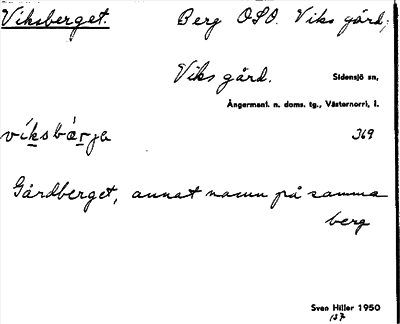 Viksberget. Berg OSO. Viks gård,
Viks gård. Sidensjö sn,
Ångermanl. n. doms. tg., Västernorrl. l.
víksbæ̀rja 369
Gårdberget, annat namn på samma
berg
Sven Hiller 1950
137